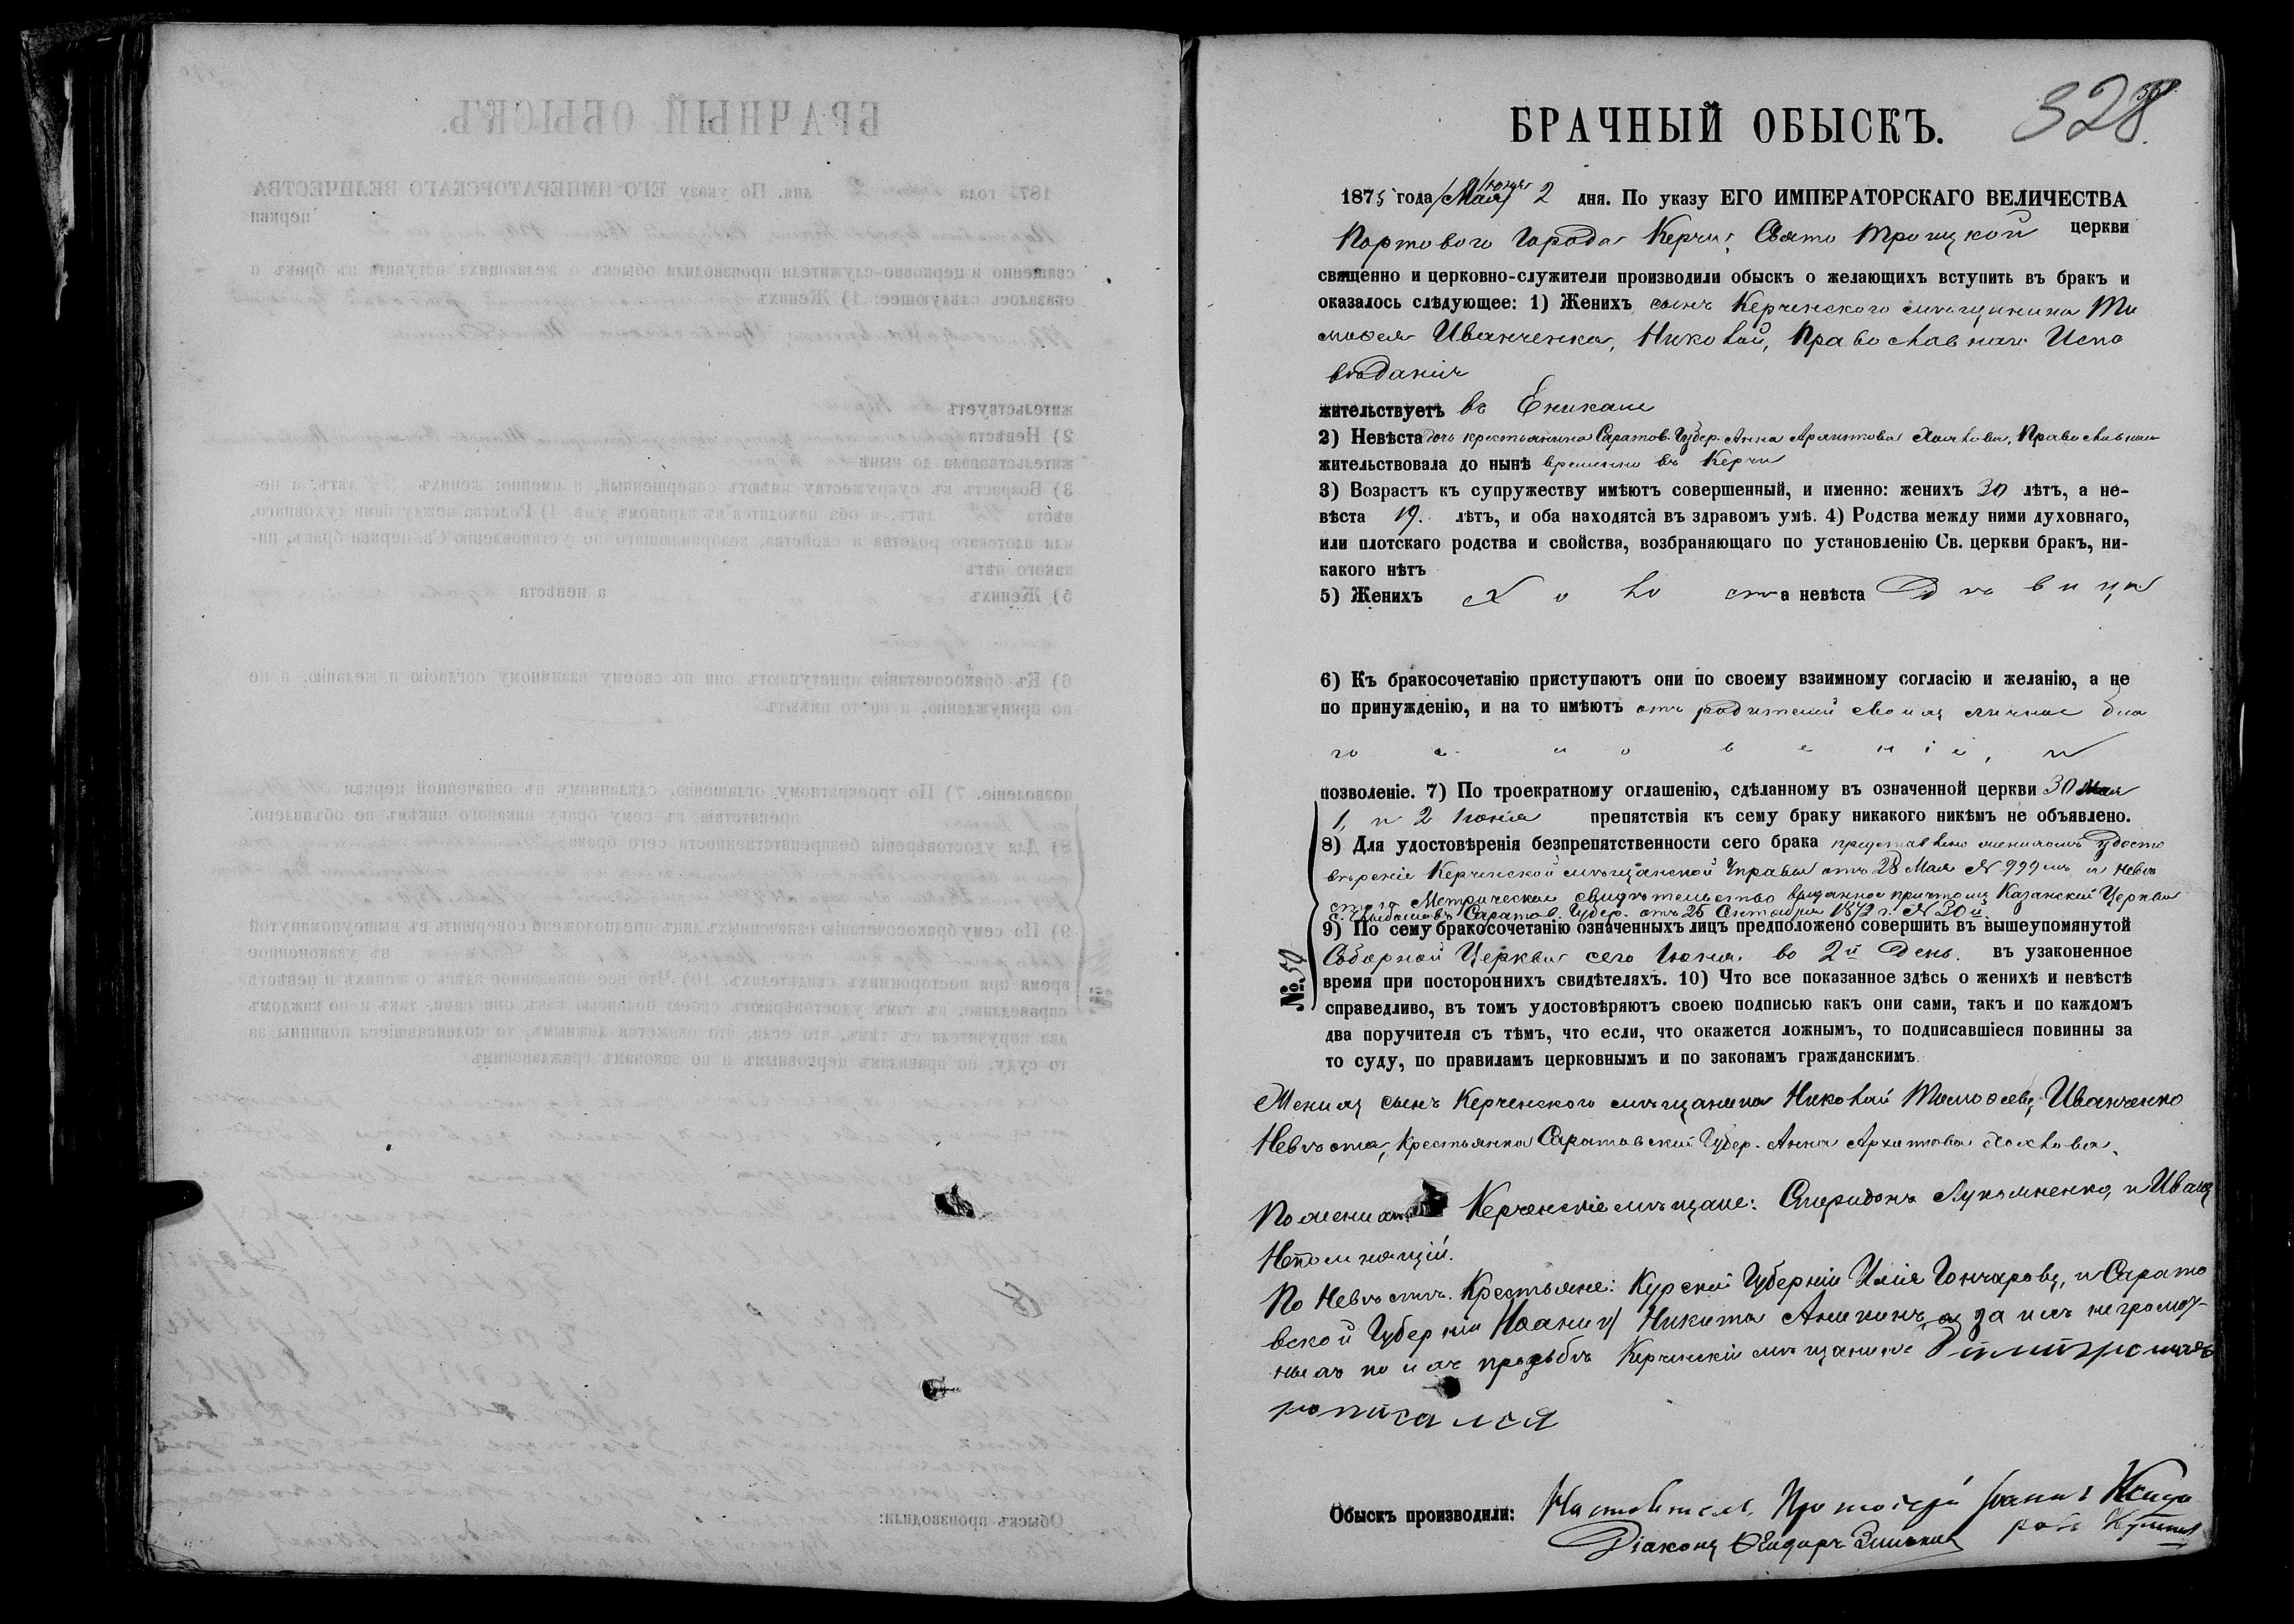 БРАЧНЫЙ ОБЫСКЪ.
328
1875 года Мая Іюня 2 дня. По указу ЕГО ИМПЕРАТОРСКАГО ВЕЛИЧЕСТВА
Портового Города Керчи, Свято Троицкой церкви
священно и церковно-служители производили обыскъ о желающихъ вступить въ бракъ и
оказалось слѣдующее: 1) Женихъ сынъ Керченского мѣщанина Ти
мофея Иванченка, Николай, Православнаго Испо
вѣданія
жительствуетъ въ Еникале
2) Невѣста дочь крестьянина Саратов. Губер. Анна Архипова Православная
жительствовала до нынѣ временно въ Керчи
3) Возрастъ къ супружеству имѣютъ совершенный, и именно: женихъ 30 лѣтъ, а не-
вѣста 19. лѣтъ, и оба находятся въ здравомъ умѣ. 4) Родства между ними духовнаго,
или плотскаго родства и свойства, возбраняющаго по установленію Св. церкви бракъ, ни-
какого нѣтъ
5) Женихъ Холостъ а невѣста Дѣвица
6) Къ бракосочетанію приступаютъ они по своему взаимному согласію и желанію, а не
по принужденію, и на то имѣютъ отъ родителей своихъ личное бла
гословеніе, и
позволеніе. 7) По троекратному оглашенію, сдѣланному въ означенной церкви 30 Мая
1, и 2 Іюня препятствія къ сему браку никакого никѣмъ не объявлено.
8) Для удостовѣренія безпрепятственности сего брака представлено женихомъ Удосто
вѣреніе Керченской мѣщанской Управы отъ 28 Мая № 999мъ и невѣ
стою Метрическое свидѣтельство выданное причтомъ Казанской Церкви
Саратов. Губер. отъ 25 Сентября 1872 г. № 30й
9) По сему бракосочетанію означенныхъ лицъ предположено совершить въ вышеупомянутой
Соборной Церкви сего Іюня во 2й День. въ узаконенное
№ 50
время при постороннихъ свидѣтеляхъ. 10) Что все показанное здѣсь о женихѣ и невѣстѣ
справедливо, въ томъ удостовѣряютъ своею подписью какъ они сами, такъ и по каждомъ
два поручителя съ тѣмъ, что если, что окажется ложнымъ, то подписавшіеся повинны за
то суду, по правиламъ церковнымъ и по законамъ гражданскимъ.
Женихъ сынъ Керченского мѣщанина Николай Тимофеевъ Иванченко
Невѣста, Крестьянка Саратовской Губер. Анна Архипова
По женихѣ Керченскіе мѣщане: Спиридонъ Лукьяненко, и Иванъ
Непомнящій.
По Невѣстѣ. Крестьяне: Курской Губерніи Илія Гончаровъ, и Сарато
вской Губерніи Никита Аникинъ, а за ихъ неграмот-
ныхъ по ихъ прозьбѣ Керченскій мѣщанинъ
росписался
Обыскъ производили: Настоятель, Протоіерей Іоаннъ
Діаконъ Ѳеодоръ